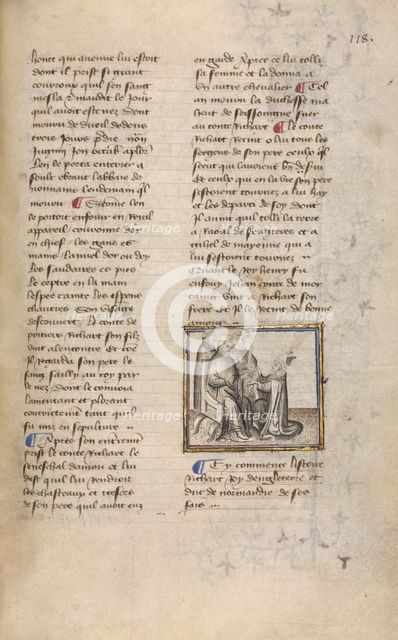 118.
honte qui avenue lui estoit
dont il prist si grant
courroup quil sen sang
mesla et maudit le jour
quil avoit este nez dont
mourut de dueil dedens
trois jours
Len le porta enterrer a
labbaie de
normains lendemain ql
mouru ¶ Si comme len
le portoit enfouir en Royal
appareil couronne dor
en chief les gans es
mains lannel dor ou doy
les saudaires es pies
le ceptre en la main
lespee cainte les esperons
chauciez Son visaire
descouvert Le conte de
poitiers Richart son filz
vint alencontre et com
il Regarda son pere le
sang sailly au roy par
le nez Dont le convoia
lamentant et plorant
tant quil
fu mis en sepulture
¶ Apres son enterrement
prist le conte Richart le
seneschal danjou et lui
dist quil lui rendroit
les chasteaux et tresors
de son pere quil avoit euz
en garde Apres ce lui tolli
sa femme et la donna a
un autre chevalier ¶ Cel
an mouru la duchesse ma
heut de Seur
au conte Richart ¶ Le conte
Richart Retint o lui tous les
sergens de son pere ceulx ql
scent qui lavoient bien servi
et ceulx qui en la vie son pere
sestoient tournez a lui hay
et les departi de soy Dont
il avint quil tolli la terre
a Raoul de et a
de mayonne qui a
lui sestoient tournez
Quant le Roy henry fu
enfouy Jehan conte de mor
taing vint a Richart son
frere et il le Retint de bonne
amour
¶ Cy commence listoire
Richart Roy dengleterre et
duc de normandie de ses
fais